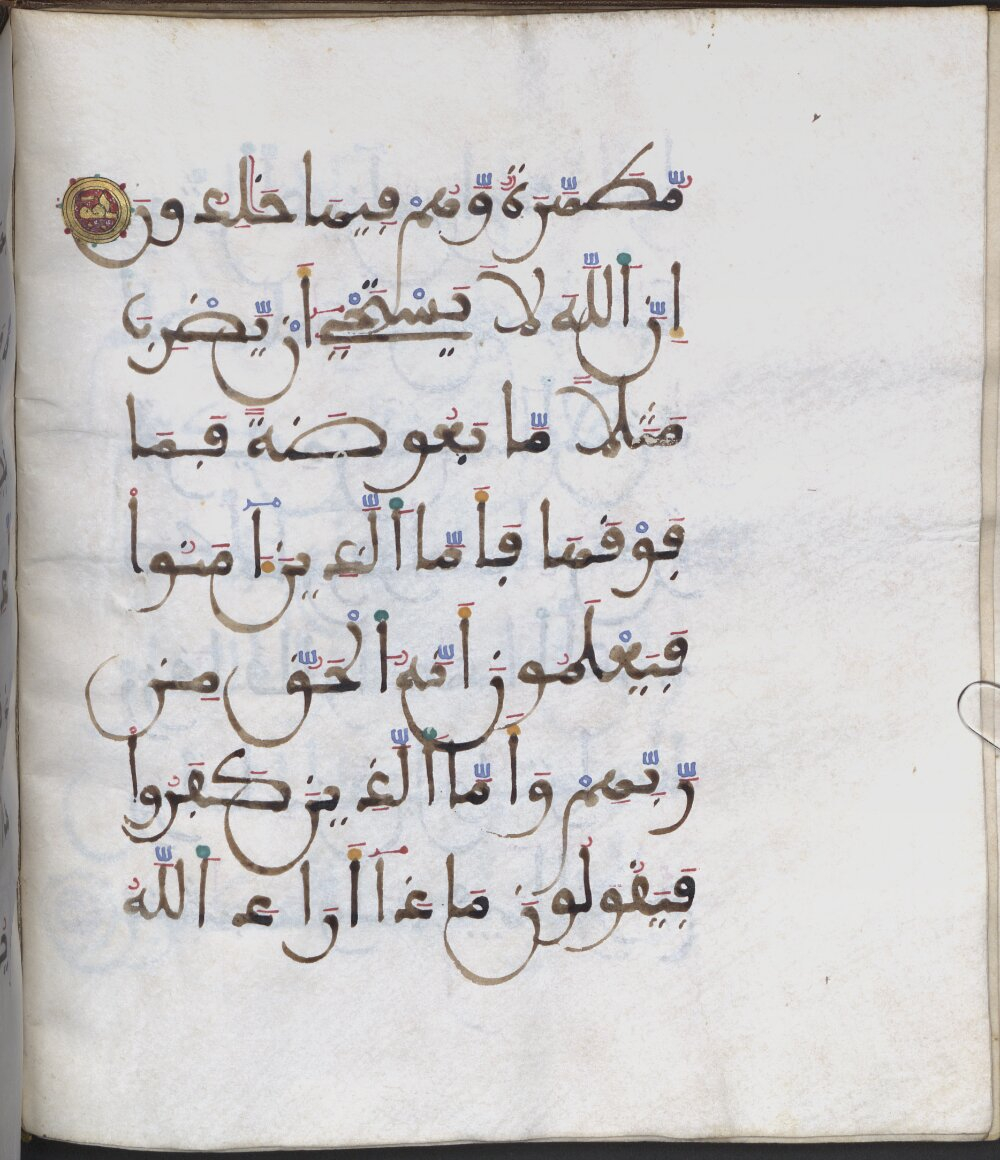 مُّطَهَّرَةٌ وَّهُمْ فِيهَا خَٰلِدُونَ
إِنَّ اَللَّهَ لَا يَسْتَحْيِۦٓ أَنْ يَّضْرِبَ
مَثَلًا مَّا بَعُوضَةً فَمَا
فَوْقَهَا فَأَمَّا اَلَّذِينَ ءَامَنُواْ
فَيَعْلَمُونَ أَنَّهُ اُلْحَقُّ مِن
رَّبِّهِمْ وَأَمَّا اَلَّذِينَ كَفَرُواْ
فَيَقُولُونَ مَاذَآ أَرَادَ اَللَّهُ